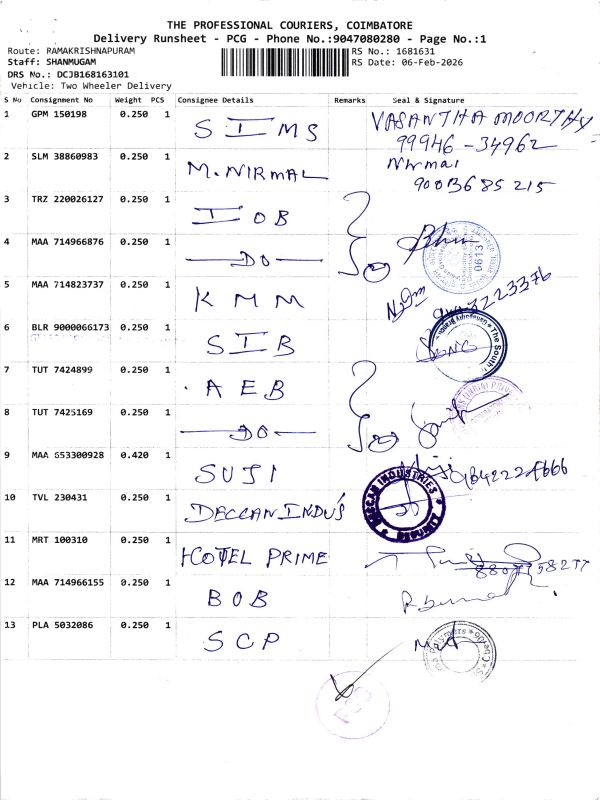 THE PROFESSIONAL COURIERS, COIMBATORE
Delivery Runsheet - PCG - Phone No.:9047080280 - Page No.:1
Route: RAMAKRISHNAPURAM RS No.: 1681631
Staff: SHANMUGAM RS Date: 06-Feb-2026
DRS No.: DCJB168163101
Vehicle: Two Wheeler Delivery
S No Consignment No Weight PCS Consignee Details Remarks Seal & Signature
1 GPM 150198 0.250 1 SIMS VASANTHA MOORTHY
99946-34962
2 SLM 38860983 0.250 1 M.NIRMAL Nirmal
3 TRZ 220026127 0.250 1 IOB
4 MAA 714966876 0.250 1 DO 0613
5 MAA 714823737 0.250 1 KMM
6 BLR 9000066173 0.250 1 SIB The South
7 TUT 7424899 0.250 1 AEB
8 TUT 7425169 0.250 1 DO
9 MAA 553300928 0.420 1 SUJI
10 TVL 230431 0.250 1 DECCAN INDU'S DECCAN INDUSTRIES
11 MRT 100310 0.250 1 HOTEL PRIME
12 MAA 714966155 0.250 1 BOB
13 PLA 5032086 0.250 1 SCP
PCG